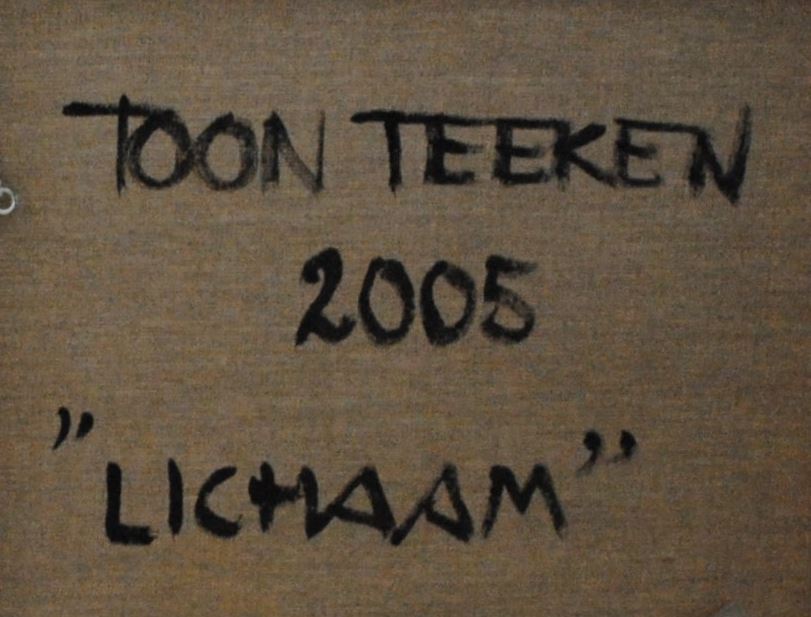 TOON TEEKEN
2005
"LICHAAM"